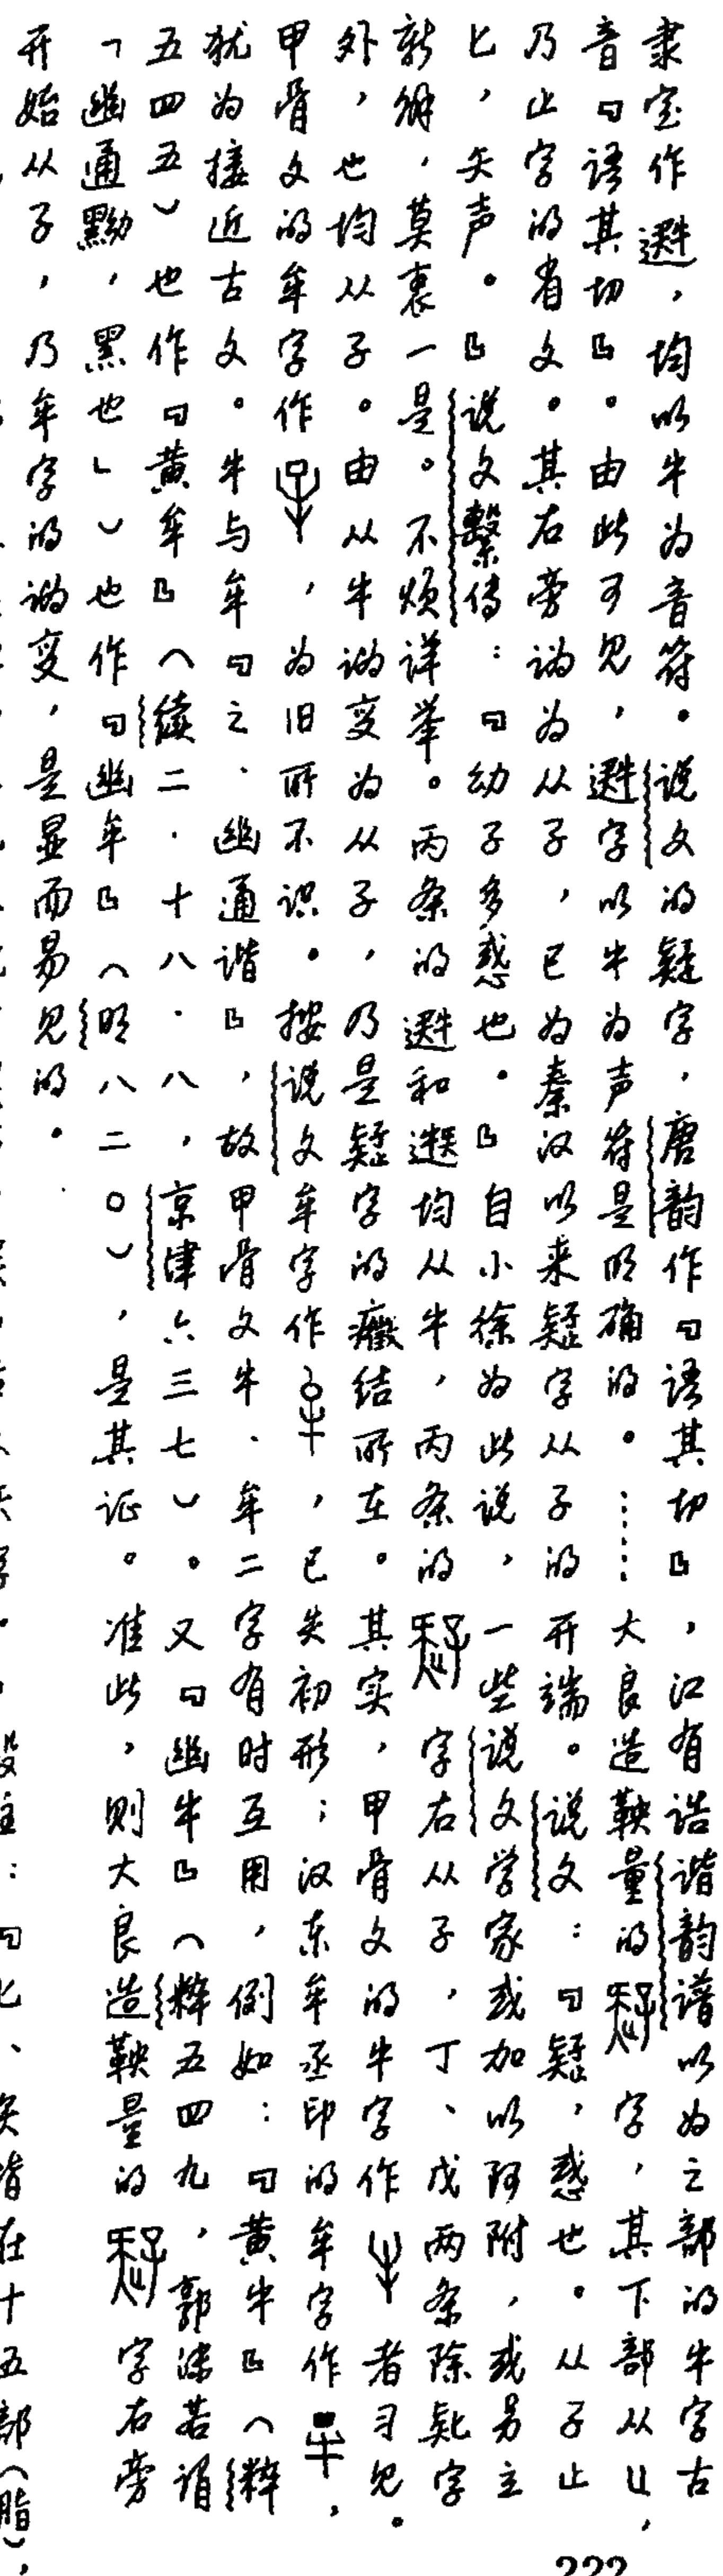 隶定作，均以牛为音符。说文的疑字，唐韵作「语其切」，江有诰谐韵谱以为之部的牛字古
音「语其切」。由此可见，字以牛为声符是明确的。……大良造鞅量的字，其下部从止，
乃止字的省文。其右旁讹为从子，已为秦汉以来疑字从子的开端。说文：「疑，惑也。从子止
匕，矢声。」说文繫传：「幼子多惑也。」自小徐为此说，一些说文学家或加以阿附，或另立
新解，莫衷一是。不烦详举。丙条的和均从牛，丙条的字右从子，丁、戊两条除字
外，也均从子。由从牛讹变为从子，乃是疑字的癥结所在。其实，甲骨文的牛字作者习见。
甲骨文的牟字作，为旧所不识。按说文牟字作，已失初形；汉东牟丞印的牟字作，
犹为接近古文。牛与牟「之、幽通谐」，故甲骨文牛、牟二字有时互用，例如：「黄牛」（粹
五四五）也作「黄牟」（续二·十八·八，京津六三七）。又「幽牛」（粹五四九，郭沫若谓
「幽通黝，黑也」）也作「幽牟」（明八二〇），是其证。准此，则大良造鞅量的字右旁
开始从子，乃牟字的讹变，是显而易见的。
222